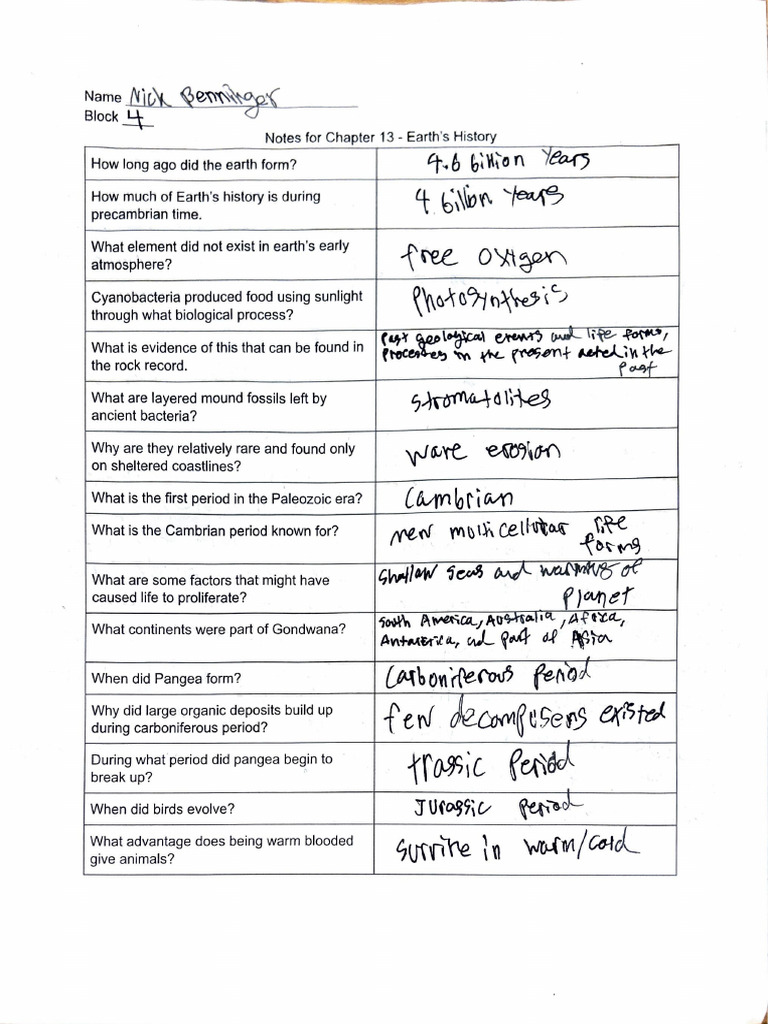 Name Nick Benninger
Block 4
Notes for Chapter 13 - Earth's History
How long ago did the earth form?
4.6 billion years
How much of Earth's history is during
precambrian time.
4 billion years
What element did not exist in earth's early
atmosphere?
free oxigen
Cyanobacteria produced food using sunlight
through what biological process?
Photosynthesis
What is evidence of this that can be found in
the rock record.
Past geological events and life forms,
Processes in the present acted in the
Past
What are layered mound fossils left by
ancient bacteria?
stromatolites
Why are they relatively rare and found only
on sheltered coastlines?
wave erosion
What is the first period in the Paleozoic era?
Cambrian
What is the Cambrian period known for?
new multicellular life
forms
What are some factors that might have
caused life to proliferate?
Shallow seas and warming of
Planet
What continents were part of Gondwana?
South America, Australia, Africa,
Antarctica, and part of Asia
When did Pangea form?
Carboniferous Period
Why did large organic deposits build up
during carboniferous period?
few decomposers existed
During what period did pangea begin to
break up?
trassic Period
When did birds evolve?
Jurassic period
What advantage does being warm blooded
give animals?
survive in warm/cold